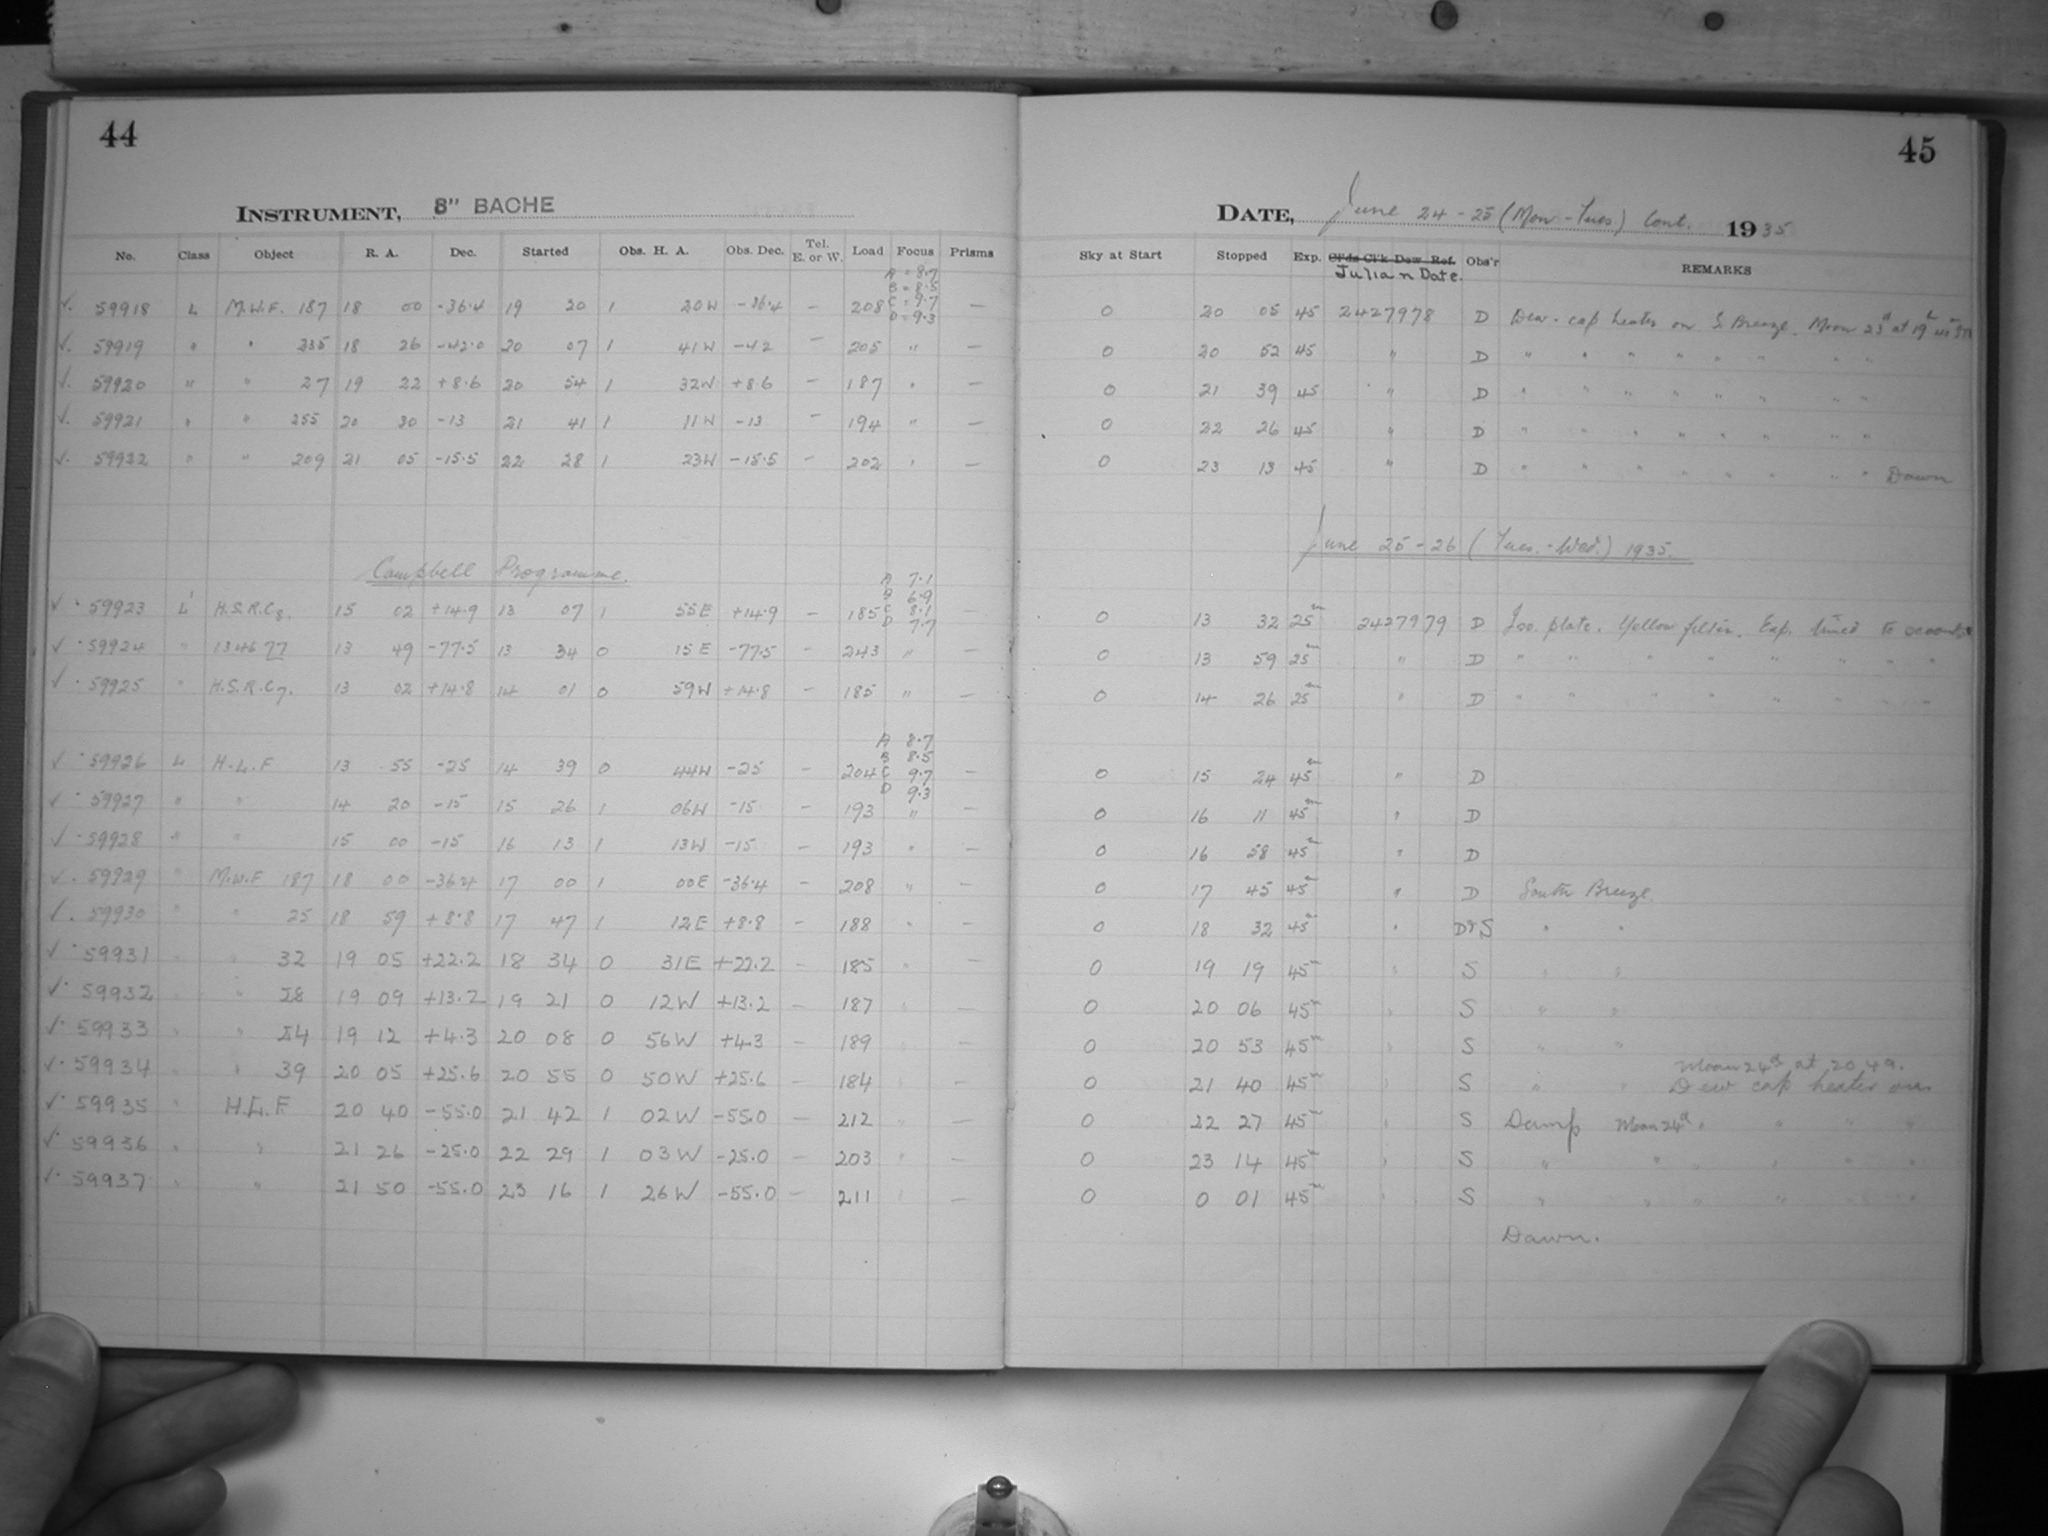 44
INSTRUMENT, 8" BACHE
No. Class Object R. A. Dec. Started Obs. H. A. Obs. Dec. Tel. E. or W. Load Focus Prisms
A = 8.7
B = 8.5
C = 9.7
D = 9.3
✓. 59918 L M.W.F. 187 18 00 -36.4 19 20 1 20W -36.4 - 208 -
✓. 59919 " " 235 18 26 -42.0 20 07 1 41W -42 - 205 " -
✓. 59920 " " 27 19 22 +8.6 20 54 1 32W +8.6 - 187 " -
✓. 59921 " " 255 20 30 -13 21 41 1 11W -13 - 194 " -
✓. 59922 " " 209 21 05 -15.5 22 28 1 23W -15.5 - 202 " -
Campbell Programme.
A 7.1
B 6.9
C 8.1
D 7.7
✓ 59923 L H.S.R.C8. 15 02 +14.9 13 07 1 55E +14.9 - 185 -
✓ 59924 " 134677 13 49 -77.5 13 34 0 15E -77.5 - 243 " -
✓ 59925 " H.S.R.C7. 13 02 +14.8 14 01 0 59W +14.8 - 185 " -
A 8.7
B 8.5
C 9.7
D 9.3
✓ 59926 L H.L.F 13 55 -25 14 39 0 44W -25 - 204 -
✓ 59927 " " 14 20 -15 15 26 1 06W -15 - 193 " -
✓ 59928 " " 15 00 -15 16 13 1 13W -15 - 193 " -
✓. 59929 " M.W.F 187 18 00 -36.4 17 00 1 00E -36.4 - 208 " -
✓. 59930 " " 25 18 59 +8.8 17 47 1 12E +8.8 - 188 " -
✓ 59931 " " 32 19 05 +22.2 18 34 0 31E +22.2 - 185 " -
✓ 59932 " " 28 19 09 +13.2 19 21 0 12W +13.2 - 187 " -
✓ 59933 " " 24 19 12 +4.3 20 08 0 56W +4.3 - 189 " -
✓ 59934 " " 39 20 05 +25.6 20 55 0 50W +25.6 - 184 " -
✓ 59935 " H.L.F. 20 40 -55.0 21 42 1 02W -55.0 - 212 " -
✓ 59936 " " 21 26 -25.0 22 29 1 03W -25.0 - 203 " -
✓ 59937 " " 21 50 -55.0 23 16 1 26W -55.0 - 211 " -
45
DATE, June 24-25 (Mon-Tues.) Cont. 1935
Sky at Start Stopped Exp. Cl'ds Cl'k Dew Ref. Obs'r REMARKS
Julian Date.
0 20 05 45 2427978 D Dew-cap heater on S. Breeze. Moon 23d at 19h 40m
0 20 52 45 " D " " " " " " " "
0 21 39 45 " D " " " " " " " "
0 22 26 45 " D " " " " " " " "
0 23 13 45 " D " " " " " " " " Dawn
June 25-26 (Tues.-Wed.) 1935.
0 13 32 25m 2427979 D Iso. plate. Yellow filter. Exp. timed to seconds
0 13 59 25m " D " " " " " " " "
0 14 26 25m " D " " " " " " " "
0 15 24 45m " D
0 16 11 45m " D
0 16 58 45m " D
0 17 45 45m " D South Breeze.
0 18 32 45m " D&S " "
0 19 19 45m " S " "
0 20 06 45m " S " "
0 20 53 45m " S " "
Moon 24d at 20 49.
0 21 40 45m " S " " Dew cap heater on
0 22 27 45m " S Damp Moon 24d " " " "
0 23 14 45m " S " " " " " "
0 0 01 45m " S " " " " " "
Dawn.